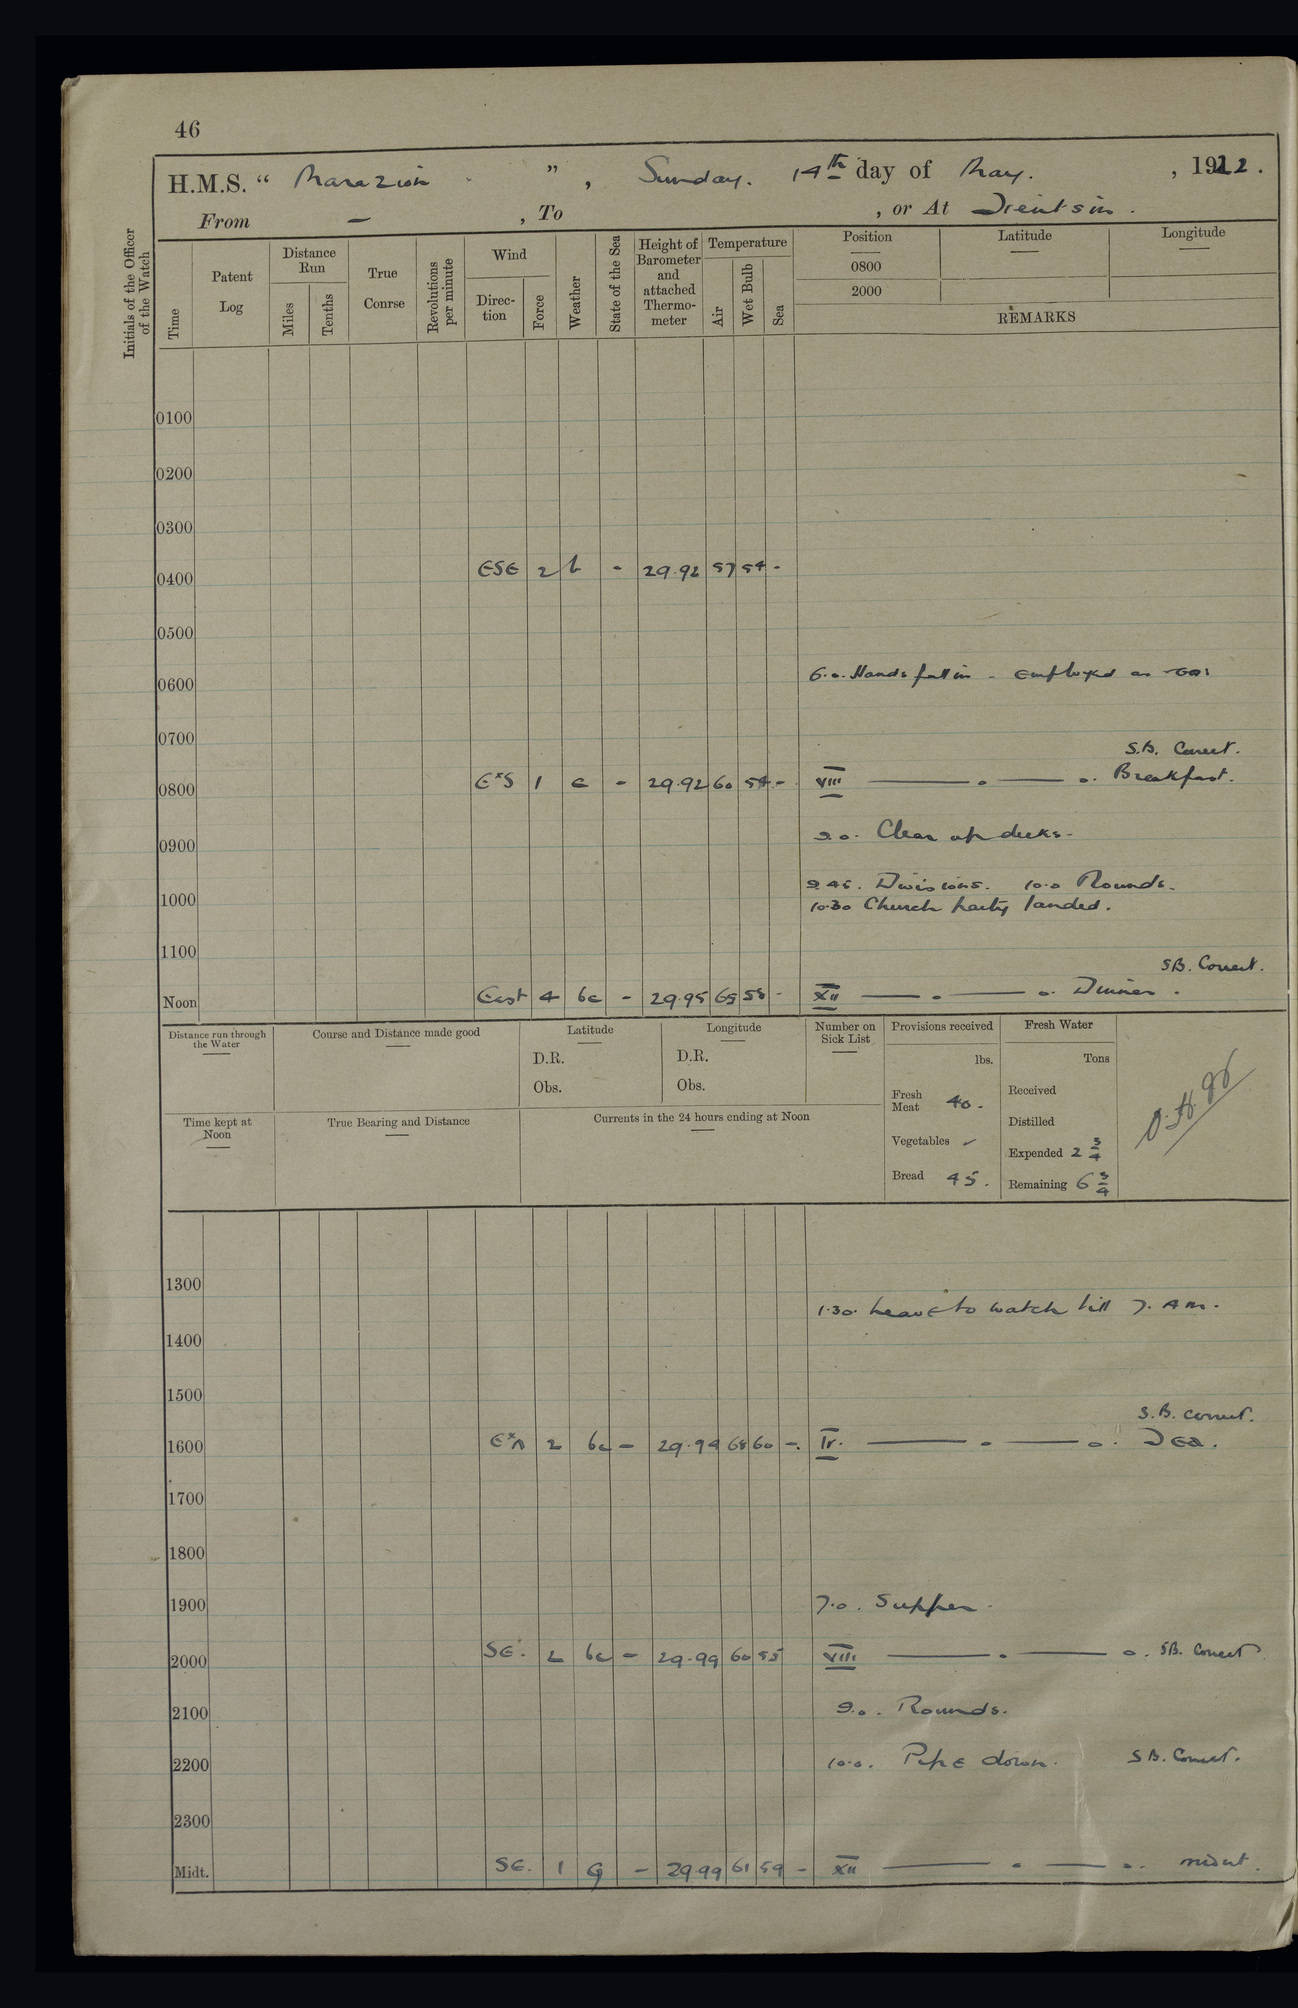 46
H.M.S. “ Marazion ” , Sunday. 14th day of May. , 1922.
From – , To , or At Tientsin.
Initials of the Officer of the Watch
Time
Patent Log
Distance Run
Miles
Tenths
True Conrse
Revolutions per minute
Wind
Direction
Force
Weather
State of the Sea
Height of Barometer and attached Thermometer
Temperature
Air
Wet Bulb
Sea
Position
Latitude
Longitude
0800
2000
REMARKS
0100
0200
0300
0400 ESE 2 b - 29.92 57 54 -
0500
0600 6.0. Hands fall in - Employed as
0700
S.B. Correct.
0800 E×S 1 c - 29.92 60 54 - VIII —— o —— o. Breakfast.
0900 9.0. Clear up decks.
9.45. Divisions. 10.0 Rounds.
1000 10.30 Church party landed.
1100
SB. Correct.
Noon East 4 bc - 29.95 65 58 - XII —— o —— o. Dinner.
Distance run through the Water
Course and Distance made good
Latitude
D.R.
Obs.
Longitude
D.R.
Obs.
Number on Sick List
Provisions received
lbs.
Fresh Meat 40.
Vegetables ✓
Bread 45.
Fresh Water
Tons
Received
Distilled
Expended 2 3/4
Remaining 6 3/4
Time kept at Noon
True Bearing and Distance
Currents in the 24 hours ending at Noon
1300 1.30. Leave to watch till 7. AM.
1400
1500
S.B. correct.
1600 E×N 2 bc - 29.94 68 60 -. IV. —— o —— o. Tea.
1700
1800
1900 7.0. Supper.
2000 SE. 2 bc - 29.99 60 55 VIII —— o —— o. SB. Correct
2100 9.0. Rounds.
2200 10.0. Pipe down. SB. Correct.
2300
Midt. SE. 1 G - 29.99 61 59 - XII —— o —— o. midnt.